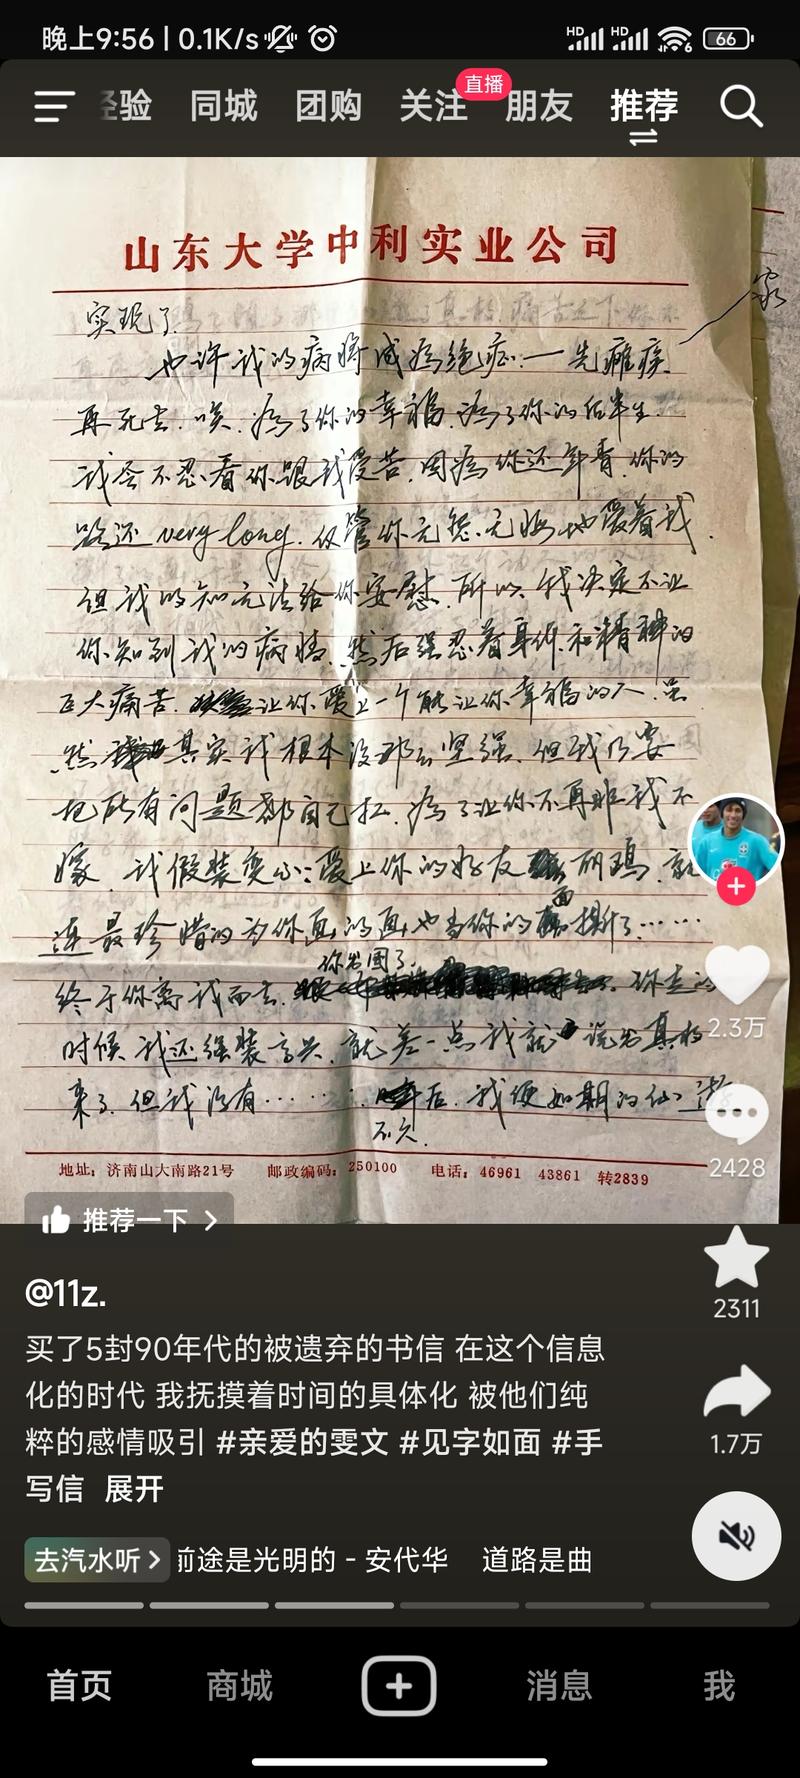 晚上9:56 | 0.1K/s
HD HD 6 66
经验 同城 团购 关注 直播 朋友 推荐
山东大学中利实业公司
家
实现了.
也许我的病将成为绝症.——先瘫痪
再死去.唉.为了你的幸福.为了你的后半生.
我会不忍看你跟我受苦.因为你还年青.你的
路还very long.仅管你无怨.无悔地爱着我.
但我的知无法给你安慰.所以.我决定不让
你知到我的病情.然后强忍着身体和精神的
巨大痛苦.让你爱上一个能让你幸福的人.虽
然其实我根本没那么坚强.但我乃要
把所有问题都自己扛.为了让你不再非我不
嫁.我假装变心:爱上你的好友丽鹃.就
连最珍惜的为你画的画也当你的面撕了……
终于你离我而去.你出国了.你走的
时候我还强装高兴.就差一点我就说出真相
来了.但我没有…….不久.后.我便如期的仙逝
地址:济南山大南路21号 邮政编码:250100 电话:46961 43861 转2839
2.3万
2428
推荐一下 >
2311
@11z.
买了5封90年代的被遗弃的书信 在这个信息
化的时代 我抚摸着时间的具体化 被他们纯
粹的感情吸引 #亲爱的雯文 #见字如面 #手
写信 展开
1.7万
去汽水听 > 前途是光明的 - 安代华 道路是曲
首页 商城 消息 我